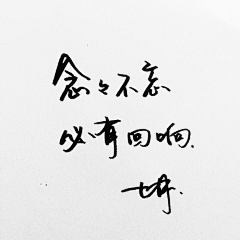 念々不忘
必有回响.